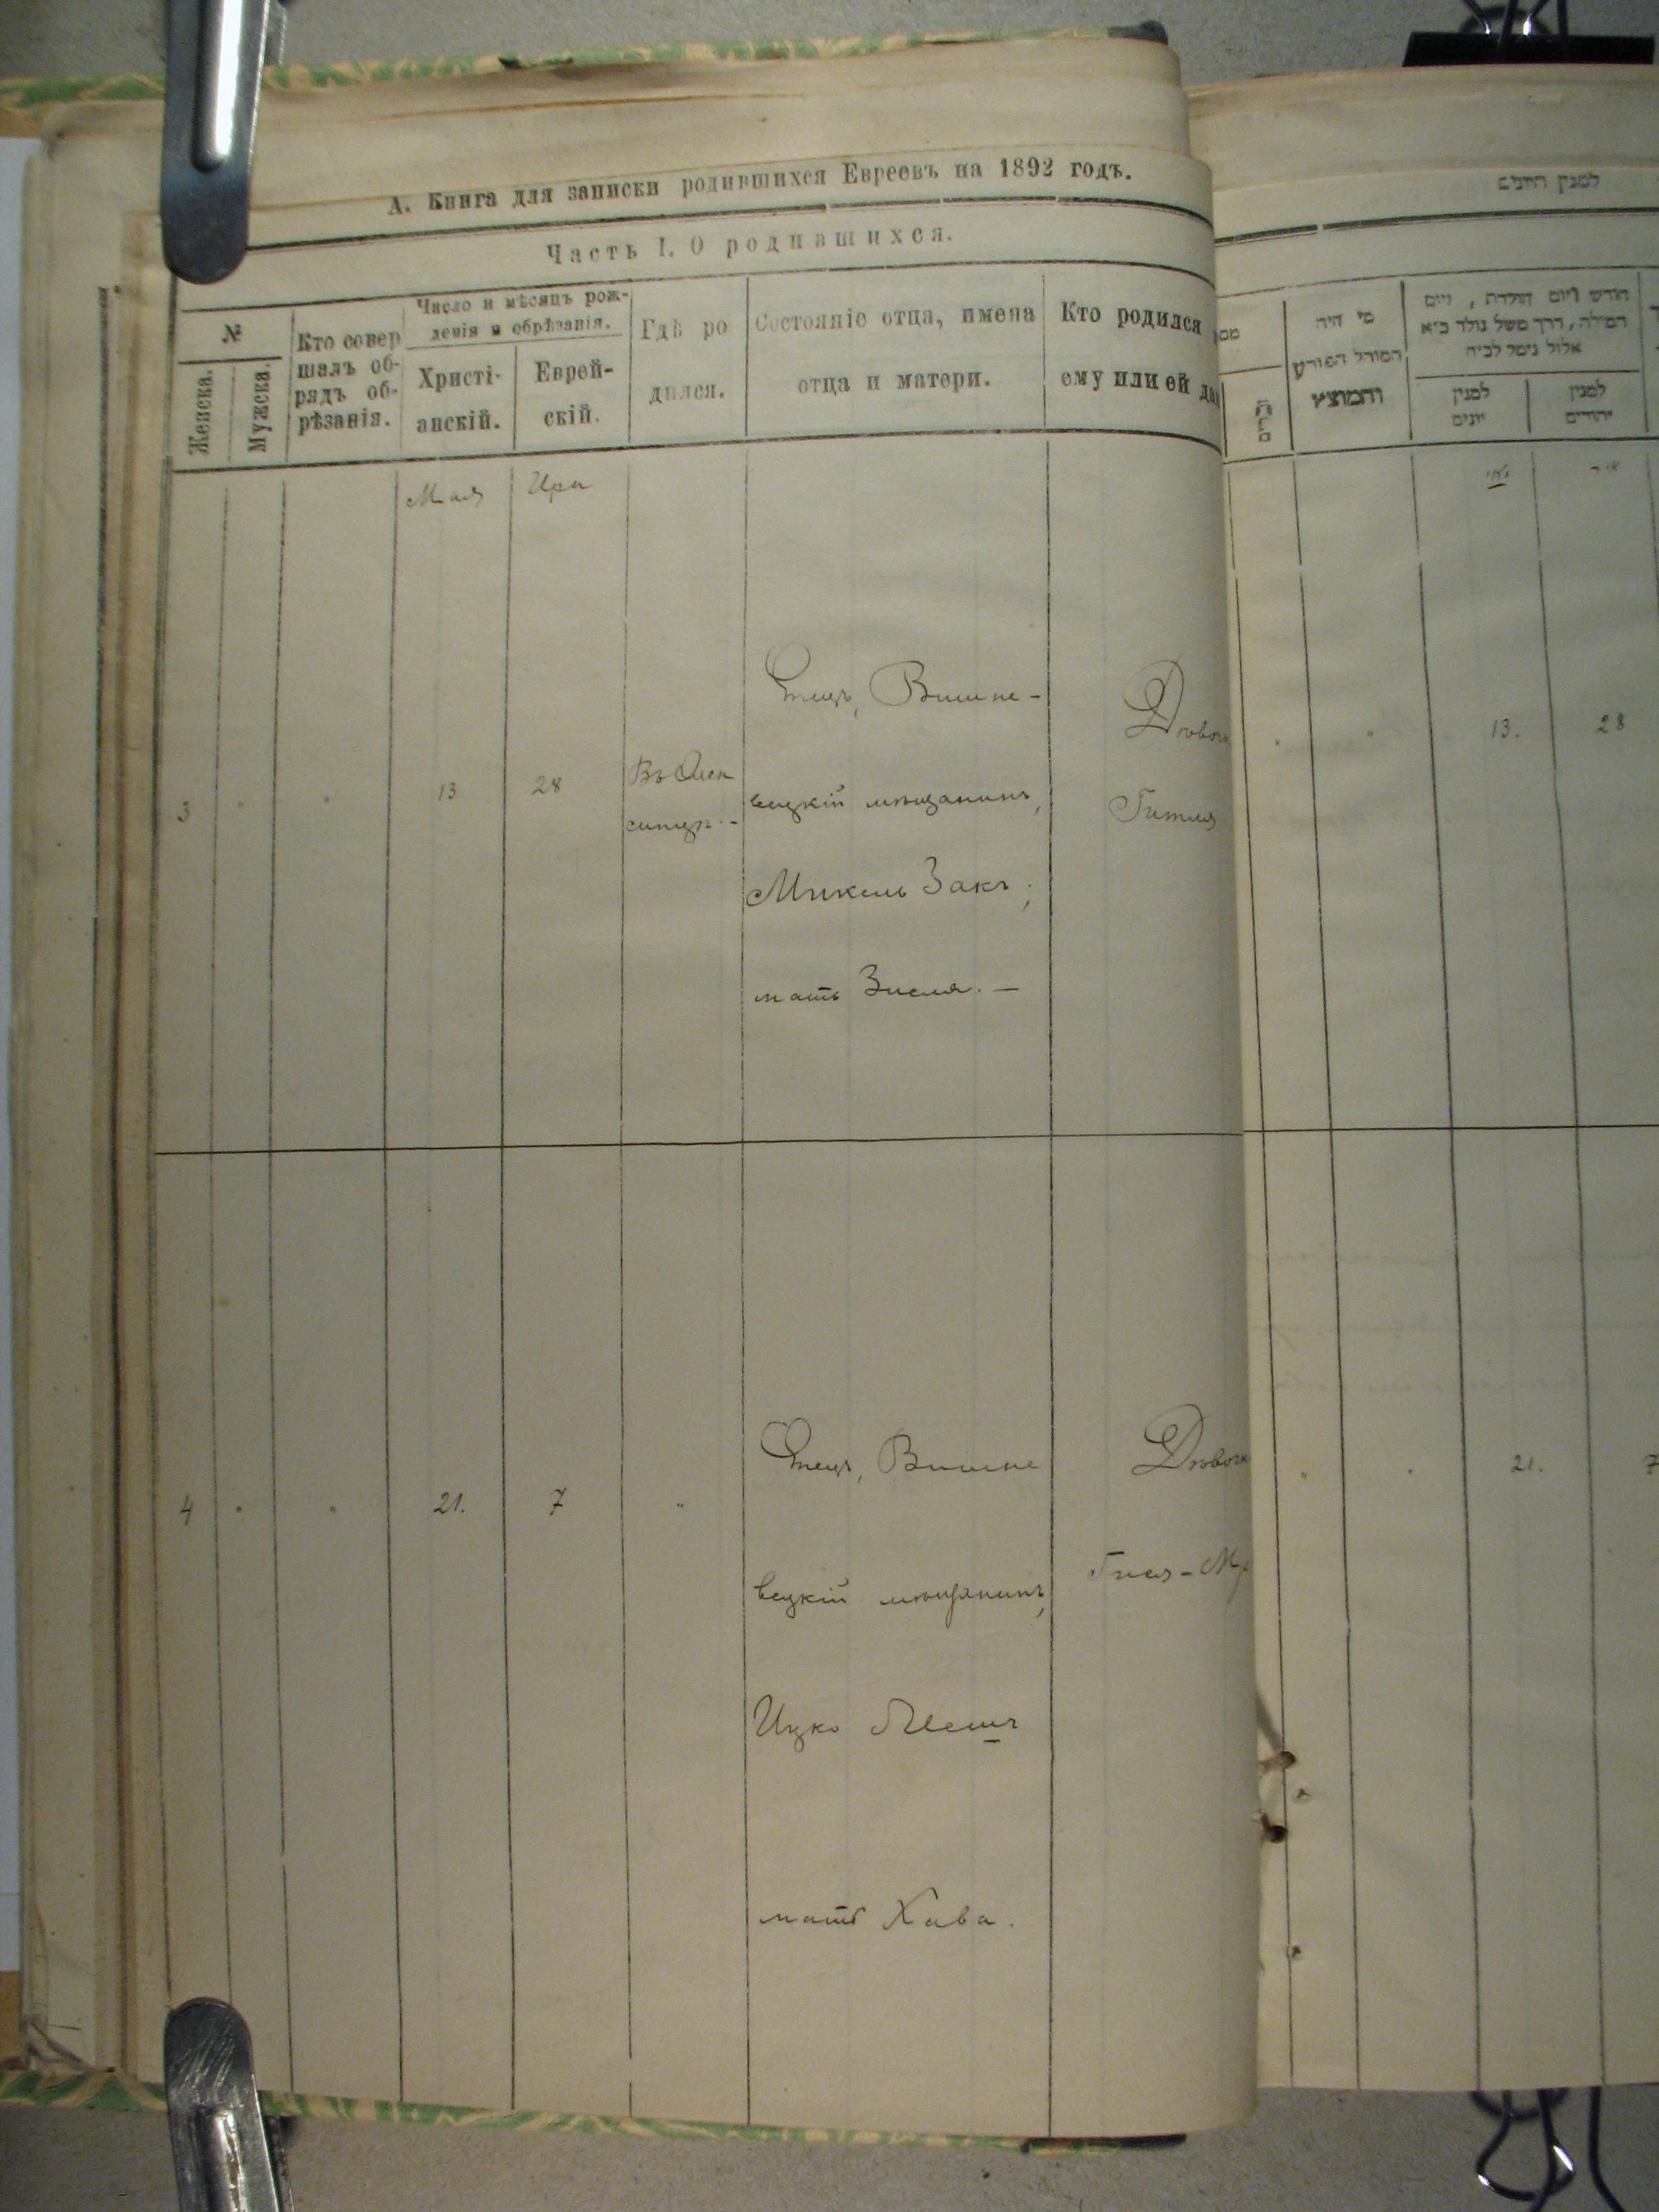 А. Книга для записки родившихся Евреевъ на 1892 годъ.
Часть I. О родившихся.
№
Женска.
Мужска.
Кто совер
шалъ об-
рядъ об-
рѣзанія.
Число и мѣсяцъ рож-
денія и обрѣзанія.
Христі-
анскій.
Еврей-
скій.
Гдѣ ро
дился.
Состояніе отца, имена
отца и матери.
Кто родился
ему или ей
Мая
Ира
3
13
28
Въ
Отецъ, Вишне-
вецкій мѣщанинъ,
Микель Закъ;
мать Зисля. —
Дѣвочк
Гитля
4
21.
7
Отецъ, Вишне
вецкій мѣщанинъ,
Ицко
мать Хава.
Дѣвочк
למנין החיים
מי היה
המוהל הפורע
והמוצץ
חודש ויום הולדת, ויום
המילה, דרך משל נולד כ״א
אלול נימל לכ״ח
למנין
יונים
למנין
יהודים
13.
28
21.
7